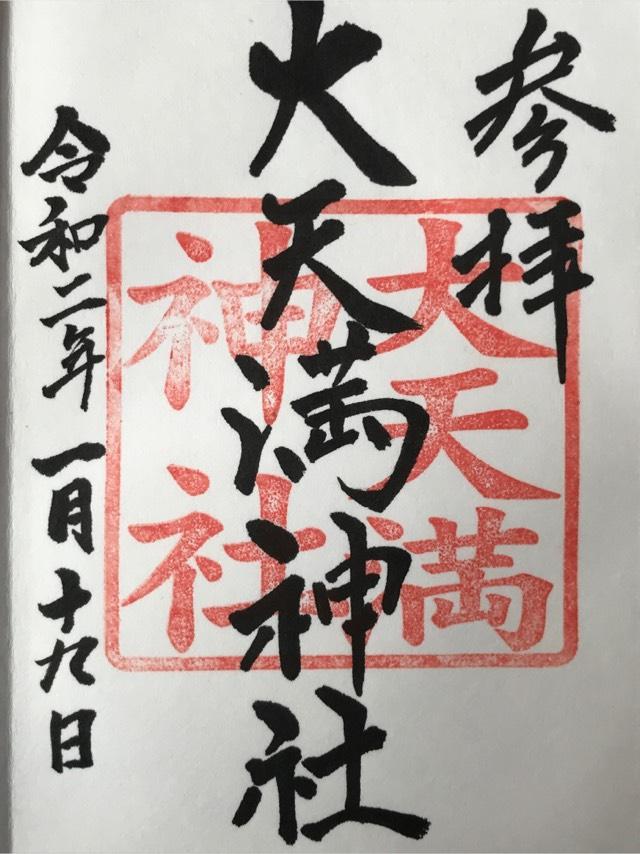 参拝
大天満神社
大天満
神社
令和二年一月十九日